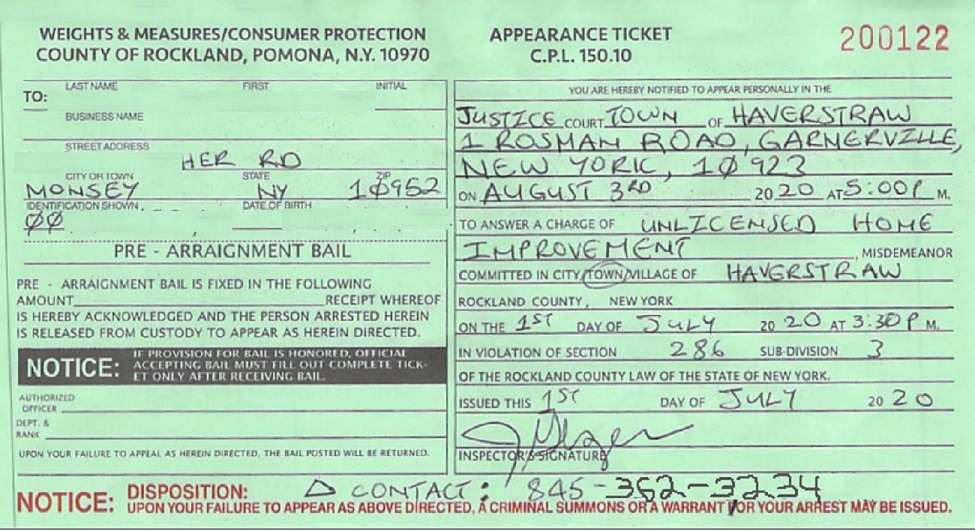 WEIGHTS & MEASURES/CONSUMER PROTECTION
COUNTY OF ROCKLAND, POMONA, N.Y. 10970
APPEARANCE TICKET
C.P.L. 150.10
200122
TO:
LAST NAME FIRST INITIAL
BUSINESS NAME
STREET ADDRESS
HER RD
CITY OR TOWN STATE ZIP
MONSEY NY 10952
IDENTIFICATION SHOWN DATE OF BIRTH
00
PRE - ARRAIGNMENT BAIL
PRE - ARRAIGNMENT BAIL IS FIXED IN THE FOLLOWING
AMOUNT RECEIPT WHEREOF
IS HEREBY ACKNOWLEDGED AND THE PERSON ARRESTED HEREIN
IS RELEASED FROM CUSTODY TO APPEAR AS HEREIN DIRECTED.
NOTICE: IF PROVISION FOR BAIL IS HONORED, OFFICIAL
ACCEPTING BAIL MUST FILL OUT COMPLETE TICK-
ET ONLY AFTER RECEIVING BAIL.
AUTHORIZED
OFFICER
DEPT. &
RANK
UPON YOUR FAILURE TO APPEAL AS HEREIN DIRECTED, THE BAIL POSTED WILL BE RETURNED.
YOU ARE HEREBY NOTIFIED TO APPEAR PERSONALLY IN THE
JUSTICE COURT TOWN OF HAVERSTRAW
1 ROSMAN ROAD, GARNERVILLE,
NEW YORK, 10923
ON AUGUST 3RD 2020 AT 5:00P M.
TO ANSWER A CHARGE OF UNLICENSED HOME
IMPROVEMENT, MISDEMEANOR
COMMITTED IN CITY/TOWN/VILLAGE OF HAVERSTRAW
ROCKLAND COUNTY, NEW YORK
ON THE 1ST DAY OF JULY 2020 AT 3:30P M.
IN VIOLATION OF SECTION 286 SUB-DIVISION 3
OF THE ROCKLAND COUNTY LAW OF THE STATE OF NEW YORK.
ISSUED THIS 1ST DAY OF JULY 2020
INSPECTOR'S SIGNATURE
NOTICE: DISPOSITION: Δ CONTACT: 845-362-3234
UPON YOUR FAILURE TO APPEAR AS ABOVE DIRECTED, A CRIMINAL SUMMONS OR A WARRANT FOR YOUR ARREST MAY BE ISSUED.